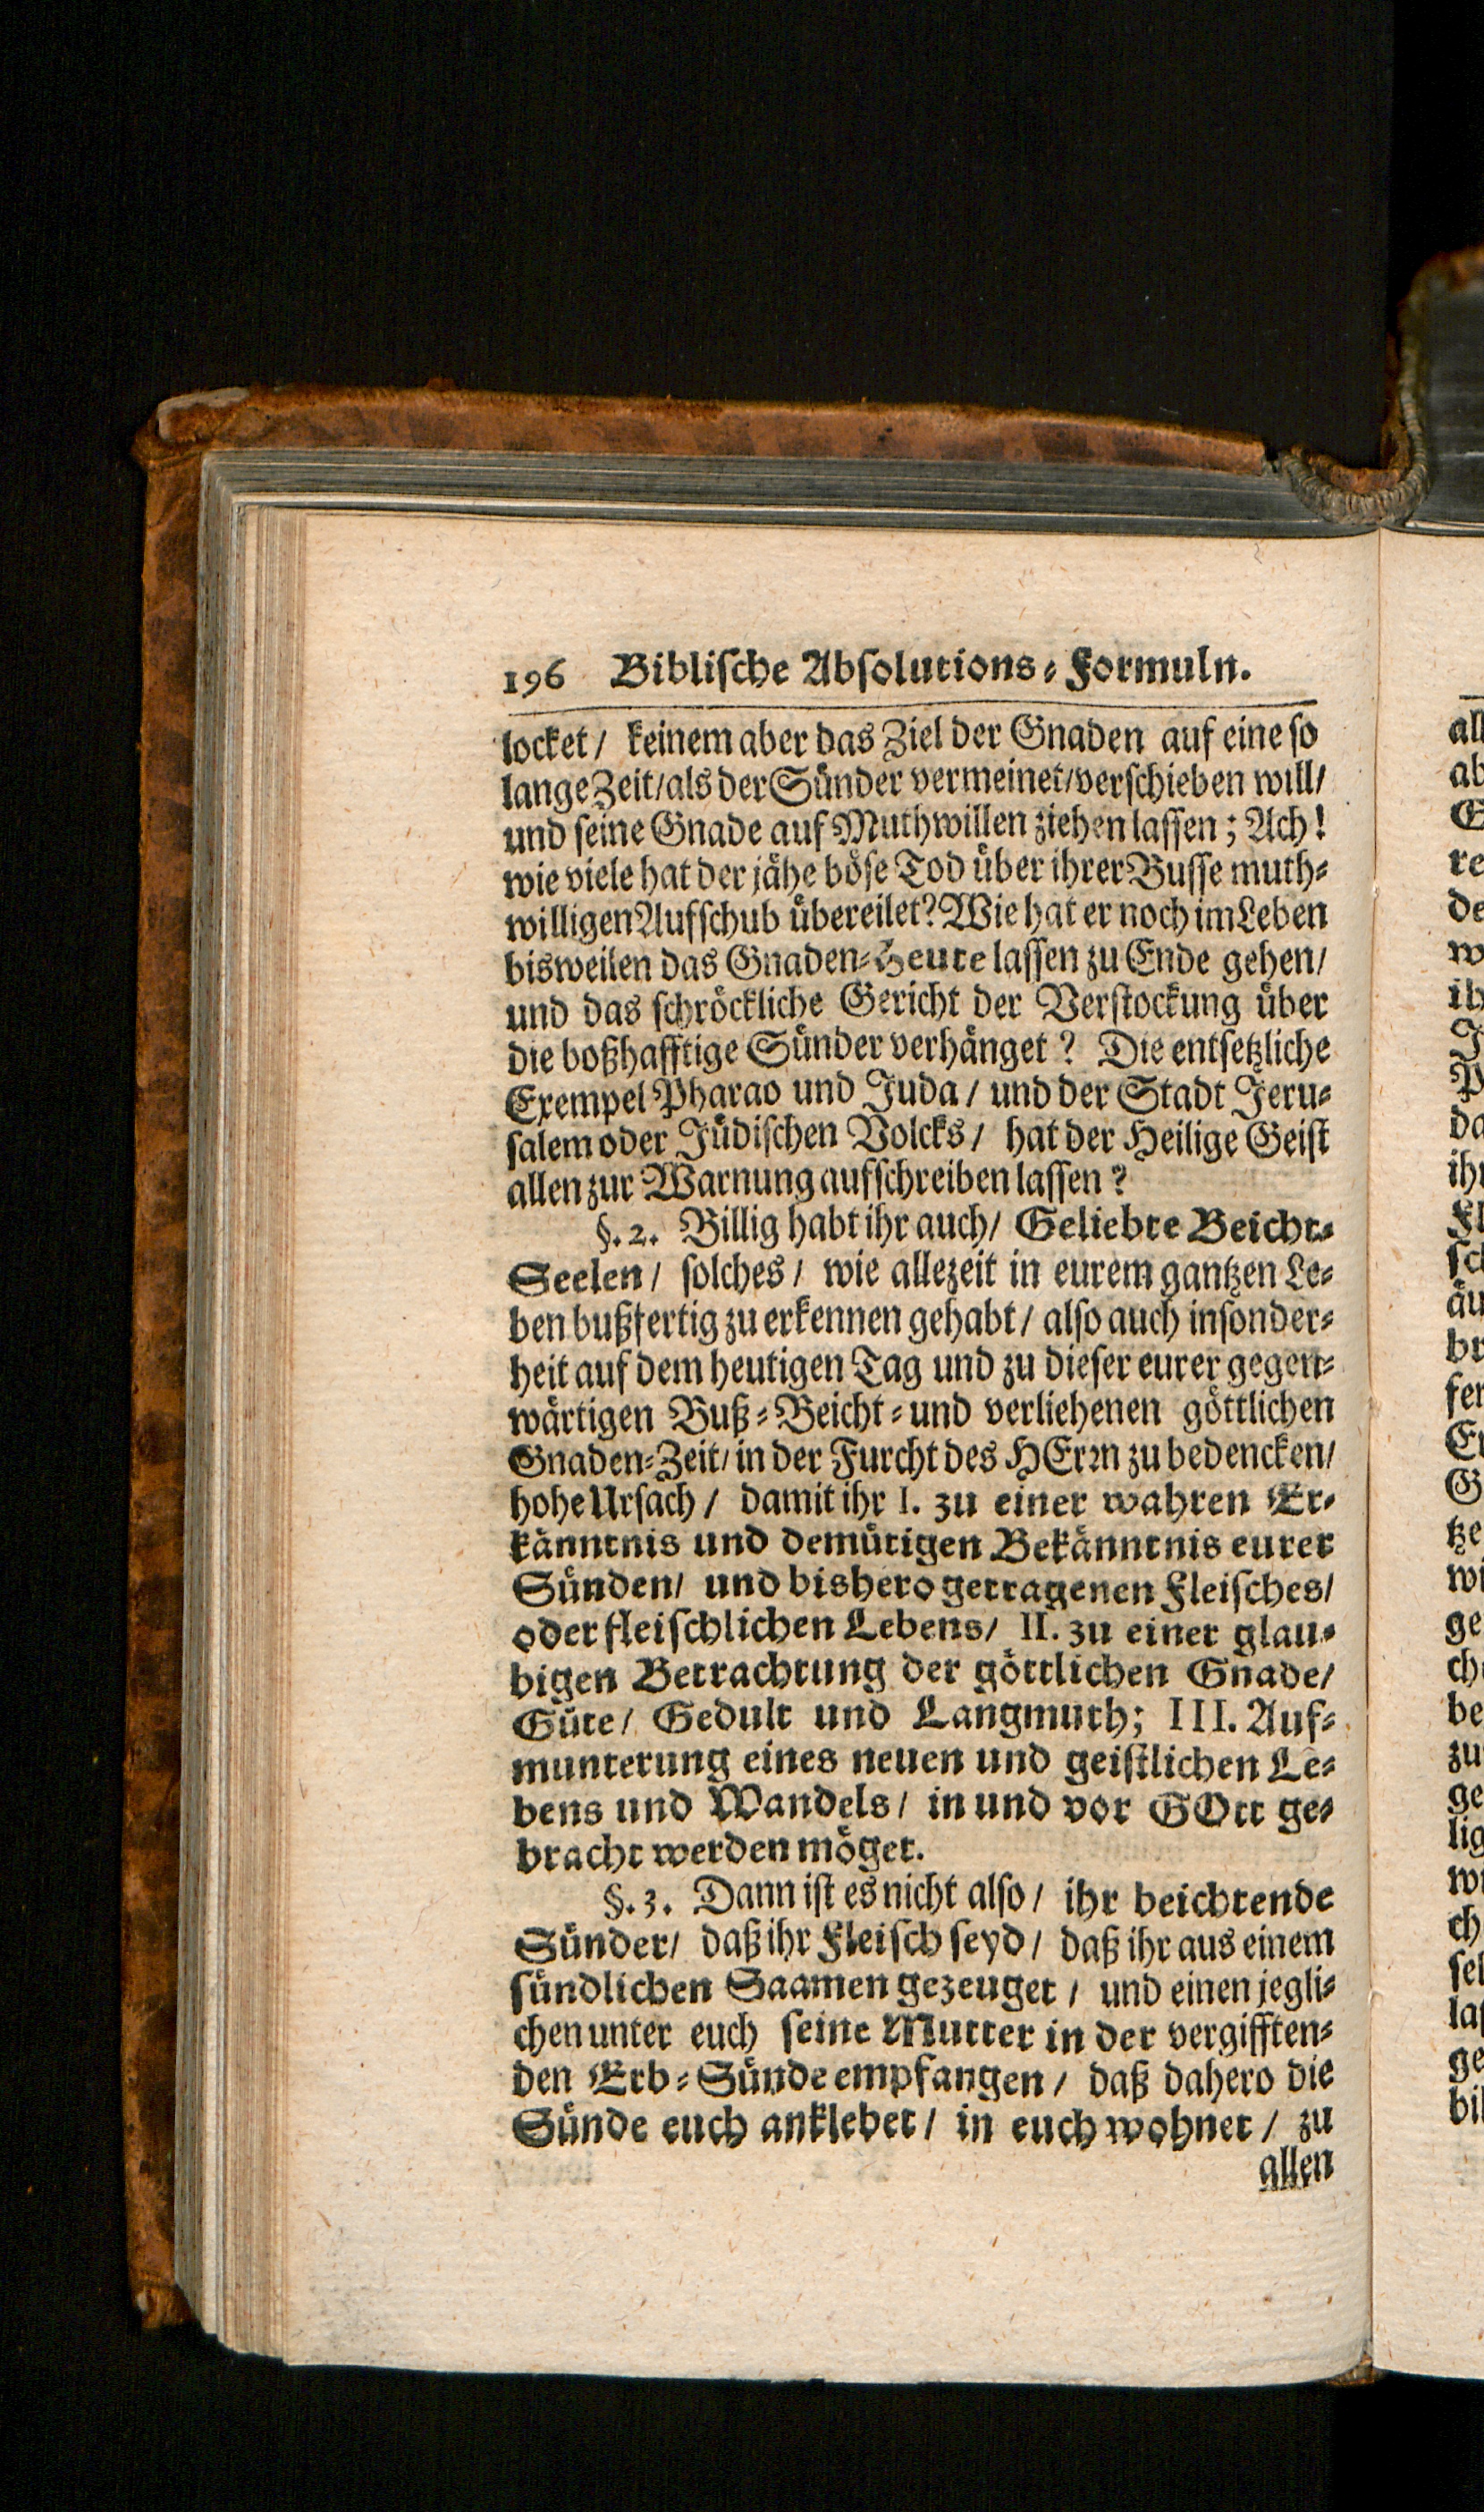 196 Biblische Absolutions-Formuln.
locket/ keinem aber das Ziel der Gnaden auf eine so
lange Zeit/als der Sünder vermeinet/verschieben will/
und seine Gnade auf Muthwillen ziehen lassen; Ach!
wie viele hat der jähe böse Tod über ihrer Busse muth-
willigen Aufschub übereilet? Wie hat er noch im Leben
bisweilen das Gnaden-Heute lassen zu Ende gehen/
und das schröckliche Gericht der Verstockung über
die boßhafftige Sünder verhänget? Die entsetzliche
Exempel Pharao und Juda/ und der Stadt Jeru-
salem oder Jüdischen Volcks/ hat der Heilige Geist
allen zur Warnung aufschreiben lassen?
§. 2. Billig habt ihr auch/ Geliebte Beicht-
Seelen/ solches/ wie allezeit in eurem gantzen Le-
ben bußfertig zu erkennen gehabt/ also auch insonder-
heit auf dem heutigen Tag und zu dieser eurer gegen-
wärtigen Buß-Beicht-und verliehenen göttlichen
Gnaden-Zeit/ in der Furcht des HErrn zu bedencken/
hohe Ursach/ damit ihr I. zu einer wahren Er-
känntnis und demütigen Bekänntnis eurer
Sünden/ und bishero getragenen Fleisches/
oder fleischlichen Lebens/ II. zu einer glau-
bigen Betrachtung der göttlichen Gnade/
Güte/ Gedult und Langmuth; III. Auf-
munterung eines neuen und geistlichen Le-
bens und Wandels/ in und vor GOtt ge-
bracht werden möget.
§. 3. Dann ist es nicht also/ ihr beichtende
Sünder/ daß ihr Fleisch seyd/ daß ihr aus einem
sündlichen Saamen gezeuget/ und einen jegli-
chen unter euch seine Mutter in der vergifften-
den Erb-Sünde empfangen/ daß dahero die
Sünde euch anklebet/ in euch wohnet/ zu
allen